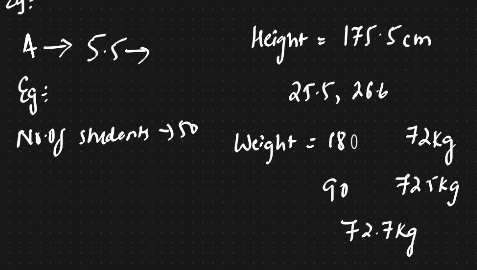 Eg:
A → 5.5 →
Eg:
No. of students → 50
Height = 175.5 cm
25.5, 26.6
Weight = 180 72kg
90 72.5kg
72.7kg